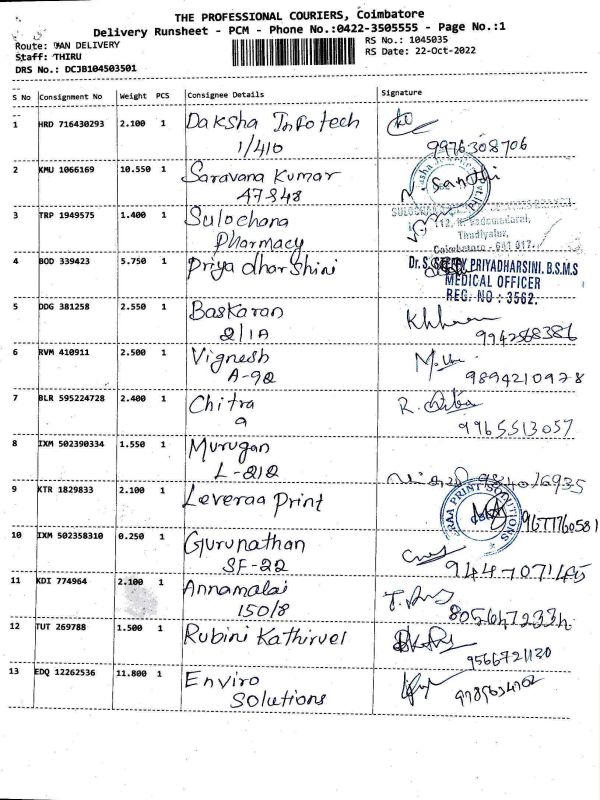 THE PROFESSIONAL COURIERS, Coimbatore
Delivery Runsheet - PCM - Phone No.:0422-3505555 - Page No.:1
Route: VAN DELIVERY
RS No.: 1045035
Staff: THIRU
RS Date: 22-Oct-2022
DRS No.: DCJB104503501
S No Consignment No Weight PCS Consignee Details Signature
1 HRD 716430293 2.100 1 Daksha Infotech
1/410 9976308706
2 KMU 1066169 10.550 1 Saravana Kumar
A7 348 Santhi
3 TRP 1949575 1.400 1 Sulochana
Pharmacy
Thadiyalur,
Coimbatore - 641 017.
4 BOD 339423 5.750 1 Priya dharshini
PRIYADHARSINI. B.S.M.S
MEDICAL OFFICER
REG. NO : 3562.
5 DDG 381258 2.550 1 Baskaran
2/1A 9942568386
6 RVM 410911 2.500 1 Vignesh
A-92 9894210978
7 BLR 595224728 2.400 1 Chitra R. Chitra
9 9965513057
8 IXM 502390334 1.550 1 Murugan
L-212
9 KTR 1829833 2.100 1 Leveraa Print
PRINT SOLUTIONS
9677760581
10 IXM 502358310 0.250 1 Gurunathan
SF-22
11 KDI 774964 2.100 1 Annamalai
150/8
12 TUT 269788 1.500 1 Rubini Kathirvel
9566721120
13 EDQ 12262536 11.800 1 Enviro
Solutions